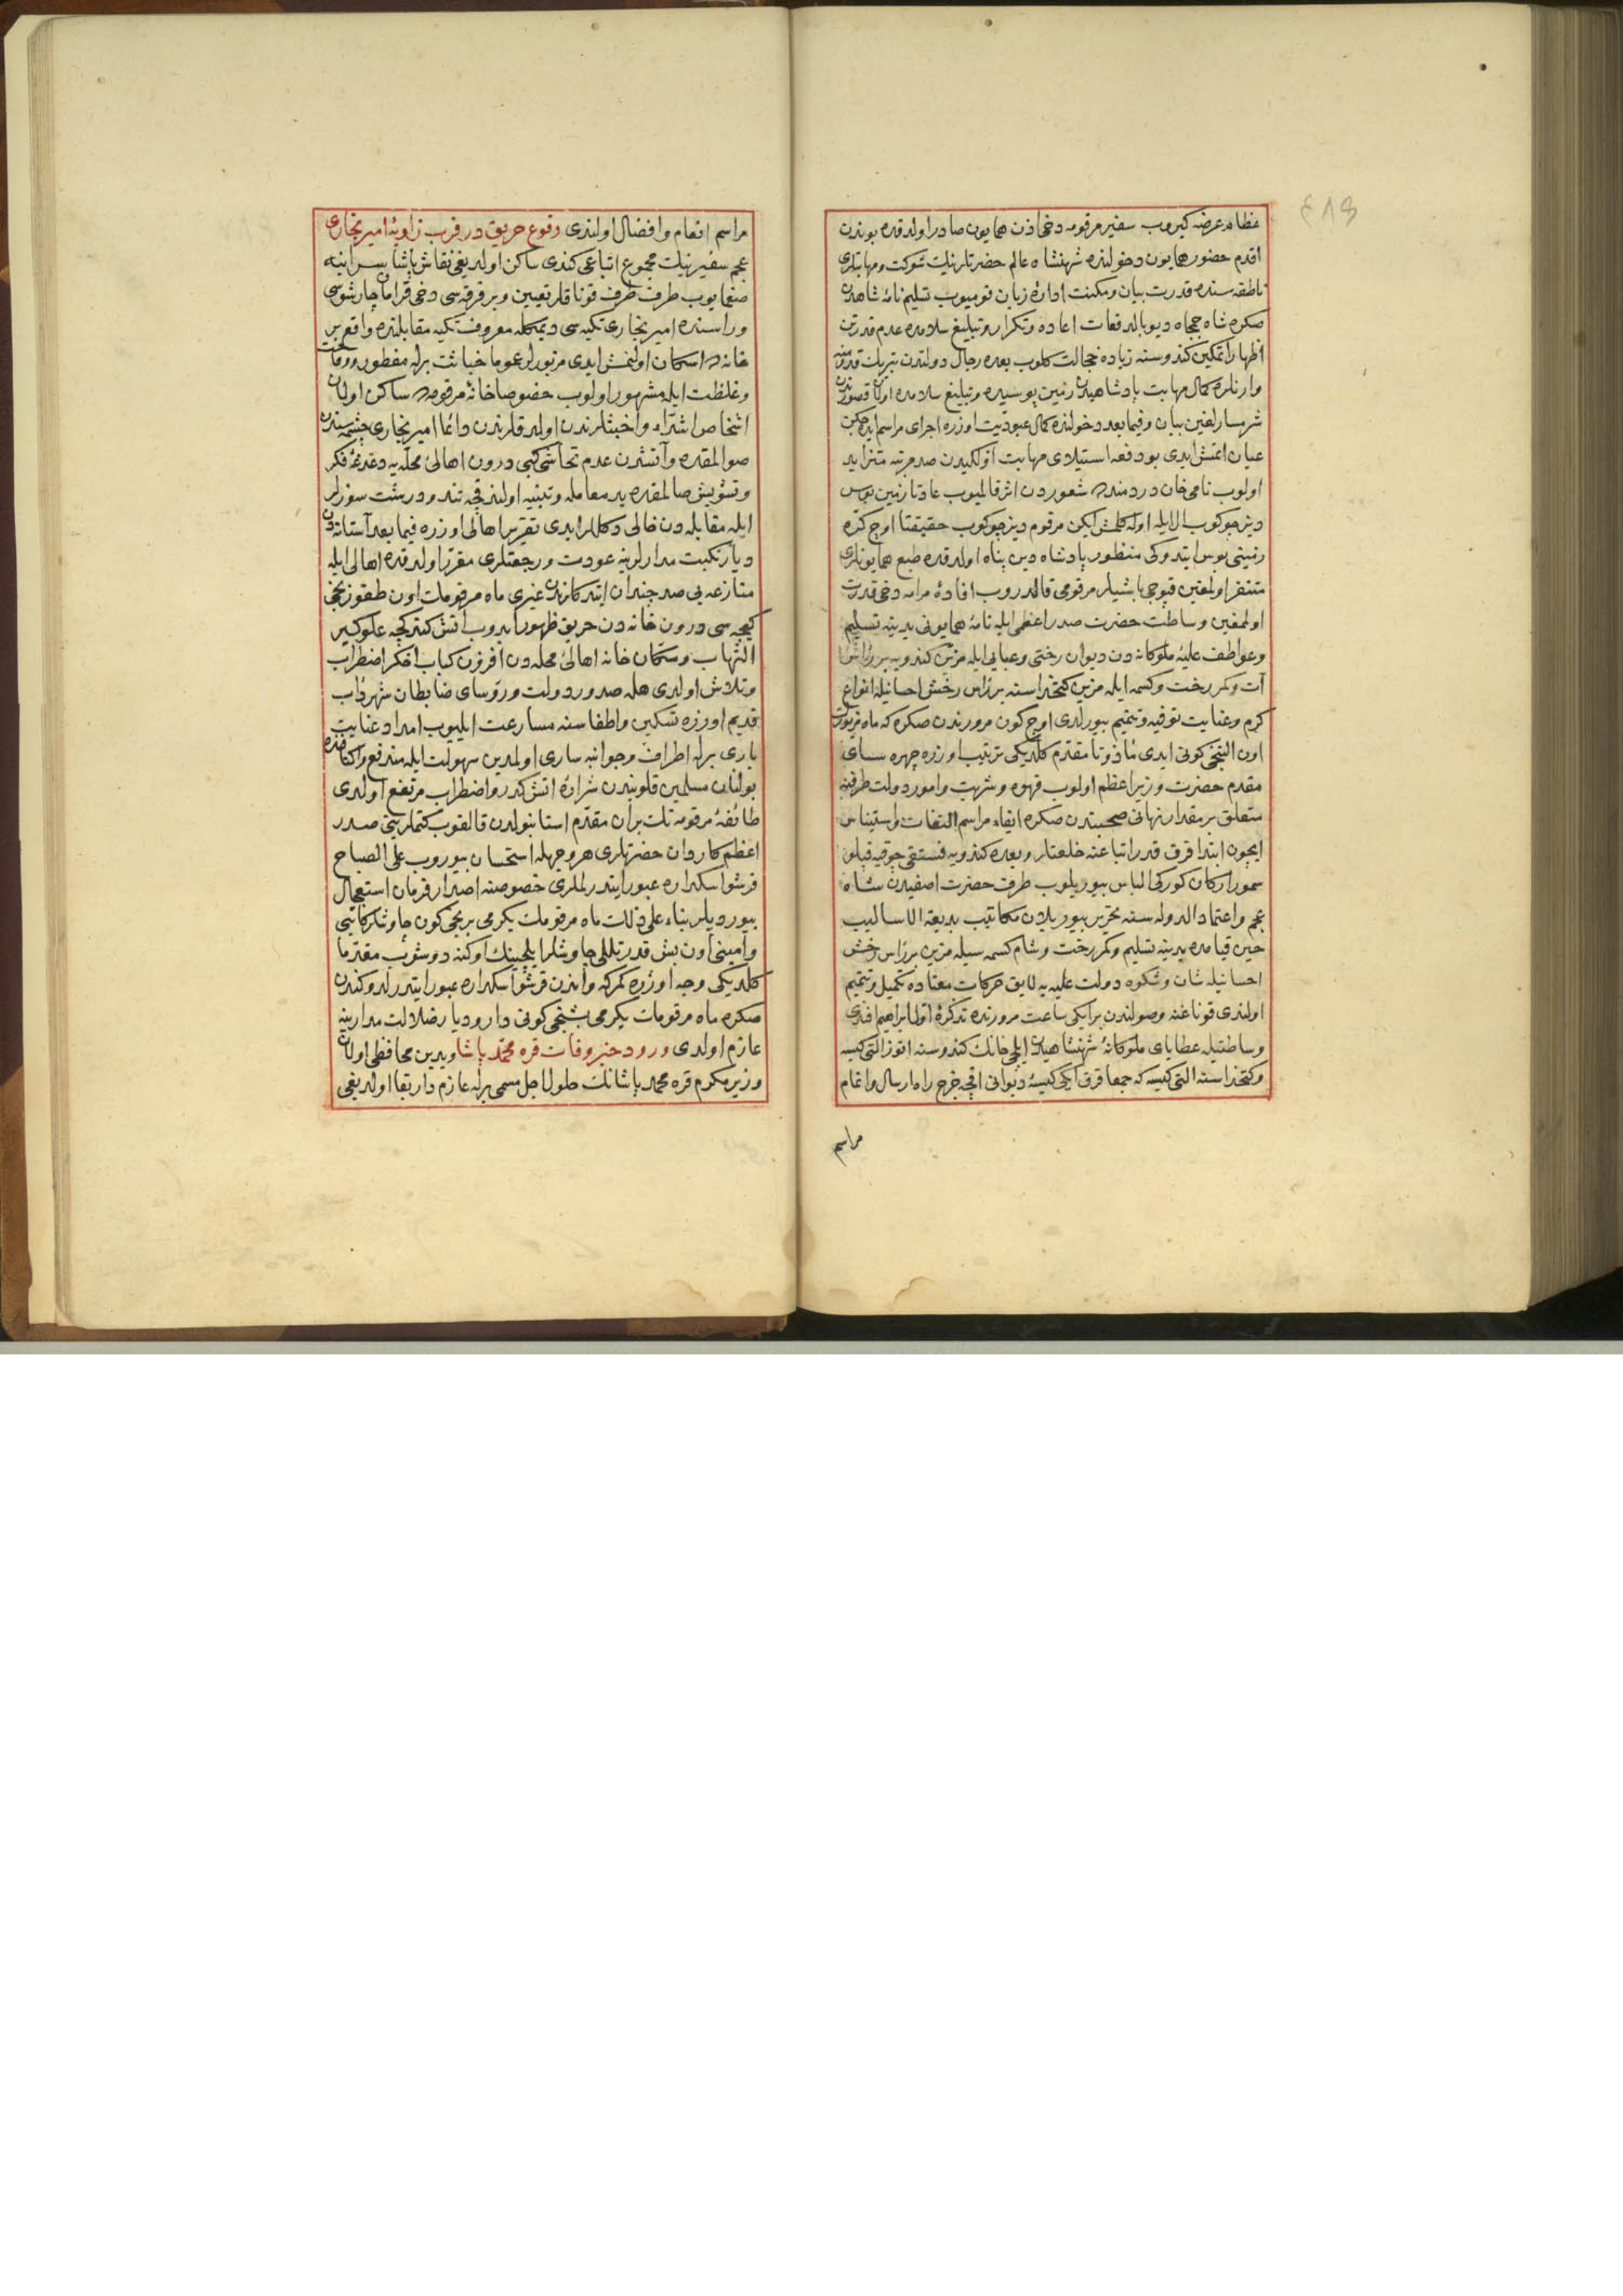 مظاهر عرضه كيروب سفير مرقومه دخی اذن همايون صادر اولدقده بوندن
اقدم حضور همايون دخولنده شهنشاه عالم حضرتلرينك شوكت ومهابتلری
ناطقه سنده قدرت بيان ومكنت اداره زبان قوميوب تسليم نامهٔ شاهيدن
صكره شاه ججاه ديو بالدفعات اعاده وتكرار وتبليغ سلامده عدم قدرتن
اظهار كندوسنه زياده خجالت كلوب بعده رجال دولتدن
وارنلره كمال مهابت پادشاهيدن زمين بوسيده وتبليغ سلامده اولان قصورندن
شرمسارلغين بيان وفيما بعد دخولنده كمال عبوديت اوزره اجرای مراسم
عيان اتمش ايدی بو دفعه استيلای مهابت اولكيدن صد مرتبه متزايد
اولوب نامی خان دردمنده شعوردن اثر قالميوب عادتا زمين بوس
ديز چوكوب ال ايله اوله كلمش ايكن مرقوم ديز چوكوب حقيقتا اوچ كره
زمينی بوس ايتدوكی منظور پادشاه دين پناه اولدقده طبع همايونلری
متنفر اولمغين قپوجی باشيلر مرقومی قالدروب افادهٔ مرامه دخی قدرت
اولمغين وساطت حضرت صدر اعظمی ايله نامهٔ همايونی يدينه تسليم
وعواطف عليهٔ ملوكانه دن ديوان رختی وعبايی ايله مزين كندويه بر رأس
آت وكمر رخت وكسمه ايله مزين كتخداسنه بر رأس رخش احسانيله انواع
كرم وعنايت توفيه وتتميم بيورلدی اوچ كون مرورندن صكره كه ماه مزبورك
اون التنجی كونی ايدی مأذونا مقدم كلديكی ترتيب اوزره چهره سای
مقدم حضرت وزير اعظم اولوب قهوه وشربت وامور دولت طرفينه
متعلق بر مقدار نهانی صحبتدن صكره ايفاء مراسم التفات واستيناس
ايچون ابتدا قرق قدر اتباعنه خلعتلر وبعده كندويه فستقی چوقيه قپلو
سمور اركان كوركی الباس بيوريلوب طرف حضرت اصفيدن شاه
عجم واعتماد الدوله سنه تحرير بيوريلان مكاتيب بديعة الاساليب
حين قيامده يدينه تسليم وكمر رخت وشام كسمه سيله مزين بر رأس رخش
احسانيله شان وشكوه دولت عليه يه لايق حركات معتاده تكميل وتتميم
اولندی قوناغنه وصولندن بر ايكی ساعت مرورنده تذكرهٔ اول ابراهيم افندی
وساطتيله عطايای ملوكانهٔ شهنشاهيدن ايلچی خانك كندوسنه اتوز التی كيسه
وكتخداسنه التی كيسه كه جمعا قرق ايكی كيسهٔ ديوانی اقچه خرج راه ارسال واتمام
مراسم
مراسم انعام وافضال اولندی وقوع حريق در قرب زاويهٔ امير بخاری
عجم سفيرينك مجموع اتباعی كندی ساكن اولديغی نقاش پاشا سراينه
صغمايوب طرف طرف قوناقلر تعيين وبر فرقه سی دخی قرامان چارشوسی
وراسنده امير بخاری تكيه سی ديمكله معروف تكيه مقابلنده واقع بر
خانه ده اسكان اولنمش ايدی مزبورلر عموما خباثت برله مفطور
وغلظت ايله مشهور اولوب خصوصا خانهٔ مرقومه ده ساكن اولان
اشخاص اشراء واخبثلرندن اولدقلرندن دائما امير بخاری چشمه سندن
صو المقده وآتشدن عدم تحاشی كبی درون اهالی محله يه دغدغهٔ فكر
وتشويش صالمقده يد معامله وتنبيه اولندقجه تند ودرشت سوزلر
ايله مقابله دن خالی دكللر ايدی تقرير اهالی اوزره فيما بعد آستانه دن
ديار نكبت مدارلرينه عودت ورجعتلری مقرر اولدقده اهالی ايله
منازعه يی صد چندان ايتدكلرندن غيری ماه مرقومك اون طقوزنجی
كيجه سی درون خانه دن حريق ظهور ايدوب اتش كتدكجه علو كير
التهاب وسكان خانه اهالی محله دن افرزن كباب افكر اضطراب
وتلاش اولدی هله صدور دولت ورؤسای ضابطان شهر دأب
قديم اوزره تسكين واطفاسنه مسارعت ايليوب امداد عنايت
باری برله اطراف وجوانبه ساری اولمدين سهولت ايله مندفع واكنافنده
بولنان مسلمين قلوبندن شرارهٔ اتش كدر واضطراب مرتفع اولدی
طائفهٔ مرقومه نك بر ان مقدم استانبولدن قالقوب كتملرينی صدر
اعظم كاردان حضرتلری هر وجهله استحسان بيوروب علی الصباح
قرشو اسكداره عبور ايتدرلملری خصوصنه اصدار فرمان استعجال
بيورديلر بناء علی ذلك ماه مرقومك يكرمی برنجی كون چاوشلر كاتبی
وامينی اون بش قدر تللی چاوشلر ايلچينك اوكنه دوشوب مقدما
كلديكی وجه اوزره كمركه واندن قرشو اسكداره عبور ايتدرلدوكندن
صكره ماه مرقومك يكرمی بشنجی كونی دارودیار ضلالت مدارينه
عازم اولدی ورود خبر وفات قره محمد پاشا ويدين محافظی اولان
وزير مكرم قره محمد پاشانك حلول اجل مسمی برله عازم دار بقا اولديغی